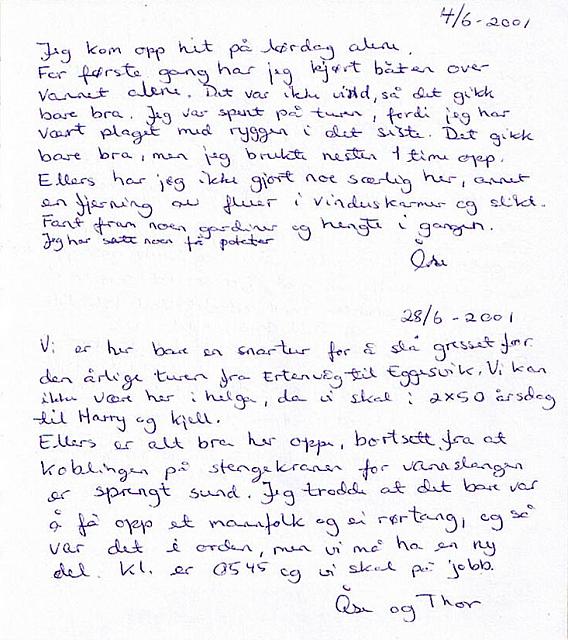 4/6-2001
Jeg kom opp hit på lørdag alene.
For første gang har jeg kjørt båten over
vannet alene. Det var ikke vind, så det gikk
bare bra. Jeg var spent på turen, fordi jeg har
vært plaget med ryggen i det siste. Det gikk
bare bra, men jeg brukte nesten 1 time opp.
Ellers har jeg ikke gjort noe særlig her, annet
en fjerning av fluer i vinduskarmer og slikt.
Fant fram noen gardiner og hengte i gangen.
Jeg har satt noen få poteter
Åse
28/6-2001
Vi er her bare en snartur for å slå gresset før
den årlige turen fra Ertenvåg til Eggesvik. Vi kan
ikke være her i helga, da vi skal i 2x50 årsdag
til Harry og Kjell.
Ellers er alt bra her oppe, bortsett fra at
koblingen på stengekranen for vannslangen
er sprengt sund. Jeg trodde at det bare var
å få opp et mannfolk og ei rørtang, og så
var det i orden, men vi må ha en ny
del. Kl. er 0545 og vi skal på jobb.
Åse og Thor